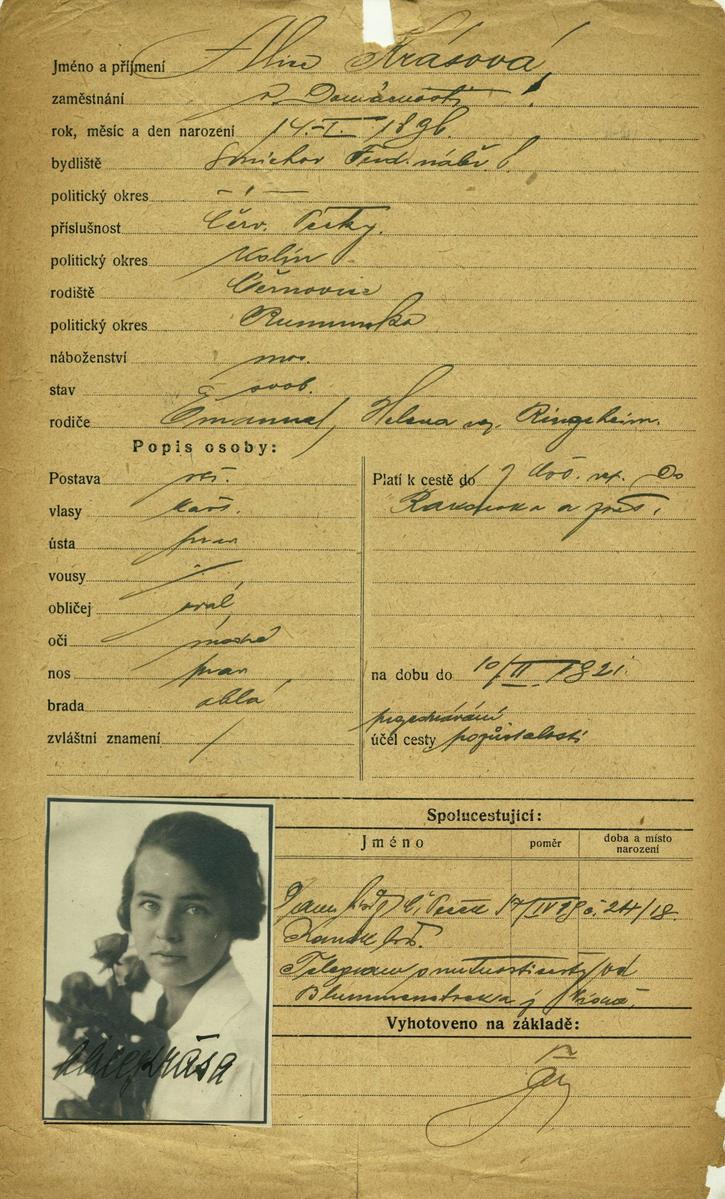 Jméno a příjmení Alice Krásová
zaměstnání v Domácnosti
rok, měsíc a den narození 14.-I. 1896.
bydliště Smíchov Ferd. nábř. 6
politický okres - " -
příslušnost Červ. Pečky.
politický okres Kolín
rodiště Černovice
politický okres Rumunsko
náboženství mos.
stav svob.
rodiče Emanuel, Helena roz. Ringelheim.
Popis osoby:
Postava
vlasy kašt.
ústa prav
vousy
obličej ovál
oči modré
nos prav
brada oblá
zvláštní znamení /
Platí k cestě do
Rakouska a zpět.
na dobu do 10/II 1921.
projednávání
účel cesty pozůstalosti
Spolucestující:
Jméno poměr doba a místo narození
Telegram o nutnosti cesty od
Vyhotoveno na základě:
Alice Krása